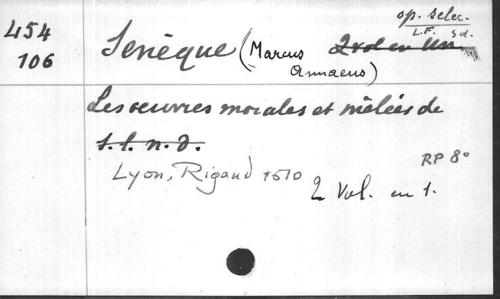 454
106
op. selec.
L.F. sd.
Senèque (Marcus
Annaeus)
2 vol en un
Les oeuvres morales et mêlées de
s.l.n.d.
Lyon, Rigaud 1610
RP 8°
2 Vol. en 1.